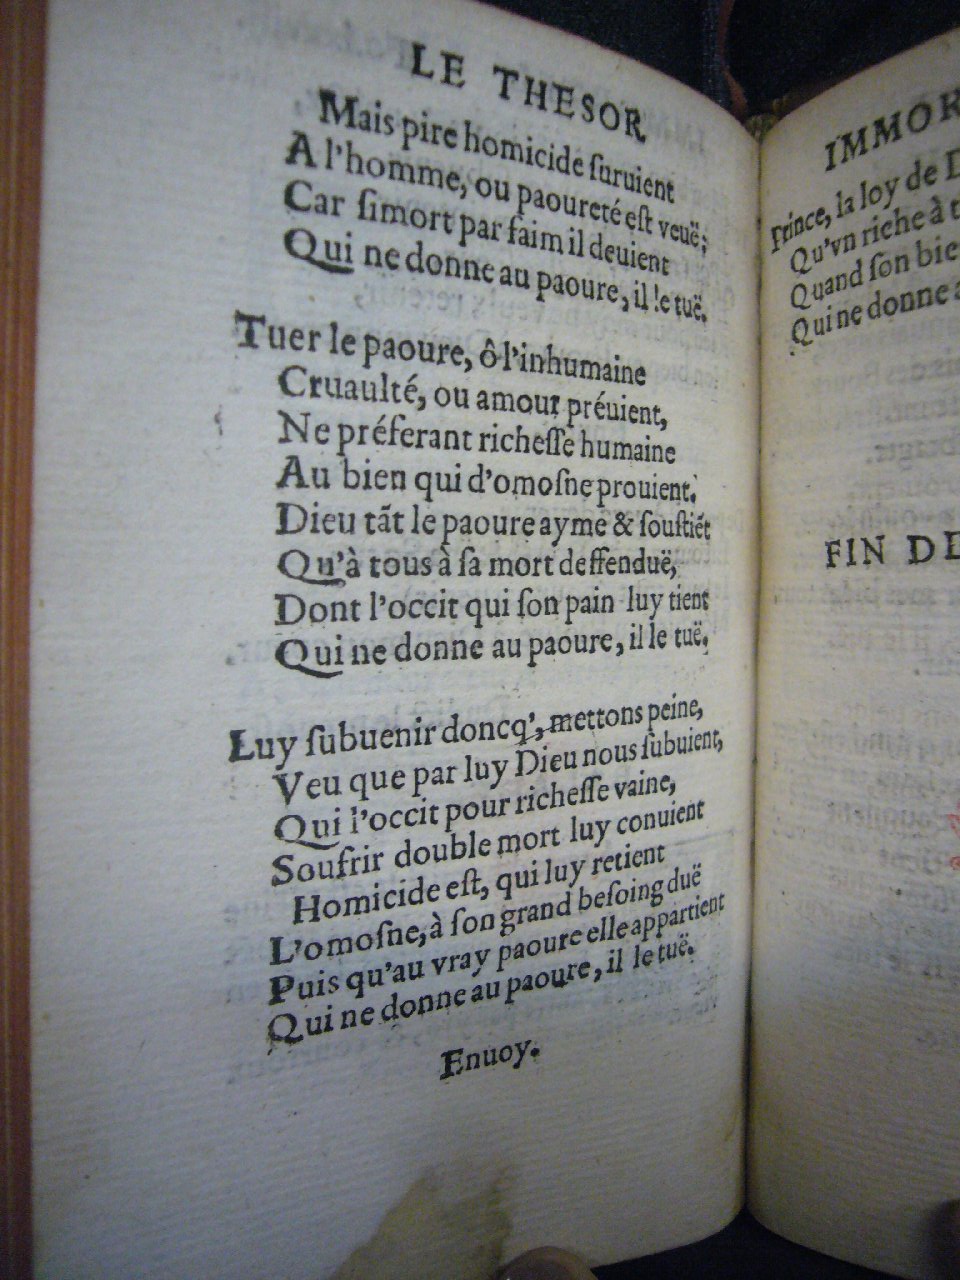 LE THESOR
Mais pire homicide ſuruient
A l'homme, ou paoureté eſt veuë;
Car ſimort par faim il deuient
Qui ne donne au paoure, il le tuë.
Tuer le paoure, ô l'inhumaine
Cruaulté, ou amour préuient,
Ne préferant richeſſe humaine
Au bien qui d'omoſne prouient.
Dieu tãt le paoure ayme & ſouſtiẽt
Qu'à tous à ſa mort deffenduë,
Dont l'occit qui ſon pain luy tient
Qui ne donne au paoure, il le tuë.
Luy ſubuenir doncq', mettons peine,
Veu que par luy Dieu nous ſubuient,
Qui l'occit pour richeſſe vaine,
Souffrir double mort luy conuient
Homicide eſt, qui luy retient
L'omoſne, à ſon grand beſoing duë
Puis qu'au vray paoure elle appartient
Qui ne donne au paoure, il le tuë.
Enuoy.
IMMOR
Prince, la loy de D
Qu'vn riche à t
Quand ſon bie
Qui ne donne a
FIN DE